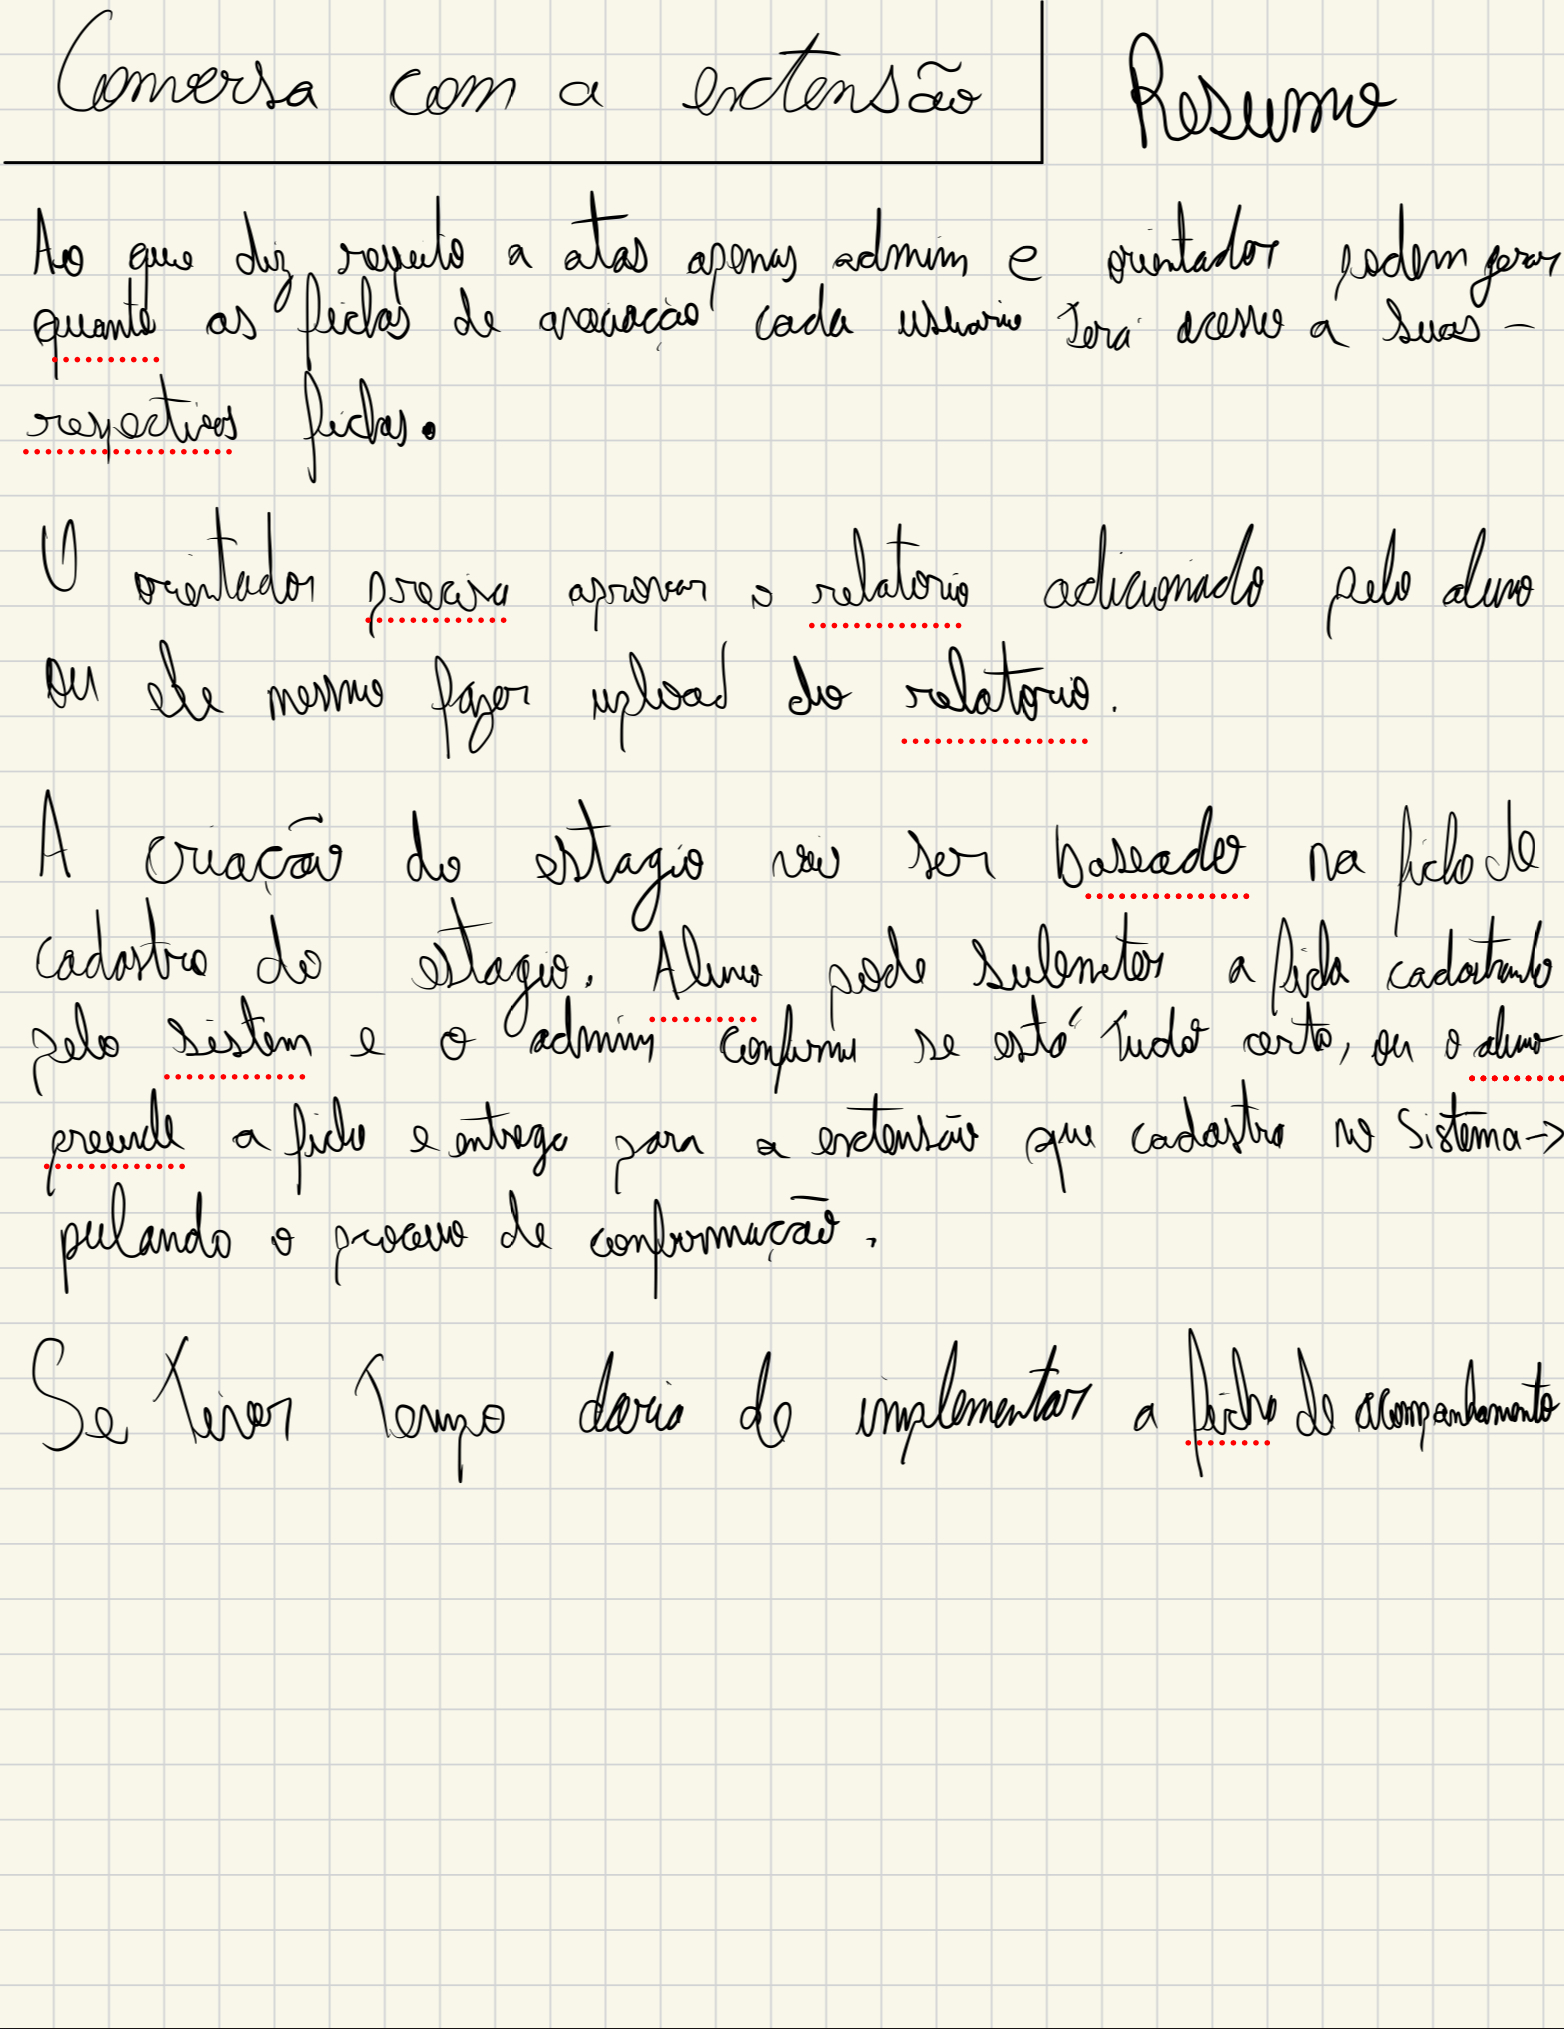 Conversa com a extensão
Resumo
Ao que diz respeito a atas apenas admin e orientador podem gerar
quanto as fichas de avaliação cada usuario Terá acesso a suas -
respectivas fichas.
O orientador precisa aprovar o relatorio adicionado pelo aluno
ou ele mesmo fazer upload do relatorio.
A criação do estagio vai ser baseado na ficha de
cadastro do estagio. Aluno pode submeter a ficha cadastrando
pelo sistem e o admin confirma se está Tudo certo, ou o aluno
preenche a ficha e entrega para a extensão que cadastra no Sistema →
pulando o processo de confirmação.
Se Tiver Tempo daria de implementar a ficha de acompanhamento